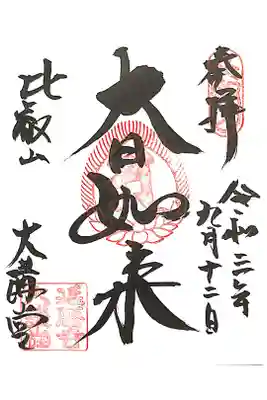 奉拝
令和三年
九月十二日
大日如来
比叡山
大講堂